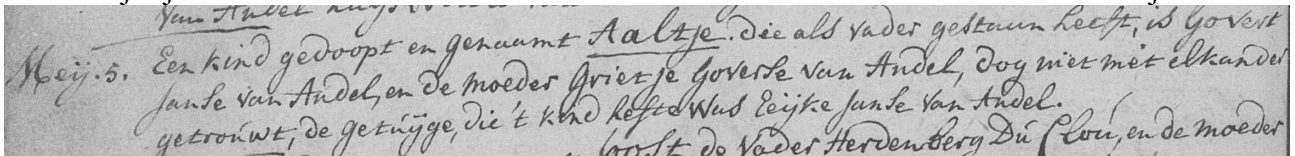 van Andel huys
Meij. 5. Een kind gedoopt en genaamt Aaltje. die als vader gestaan heeft, is Govert
Janse van Andel, en de moeder Grietje Goverse van Andel, dog niet mét elkander
getroúwt; de getuijge, die 't kind hefte Was Eeijke Janse Van Andel.
Joost de Vader Herdenberg Dú Cloú, en de moeder